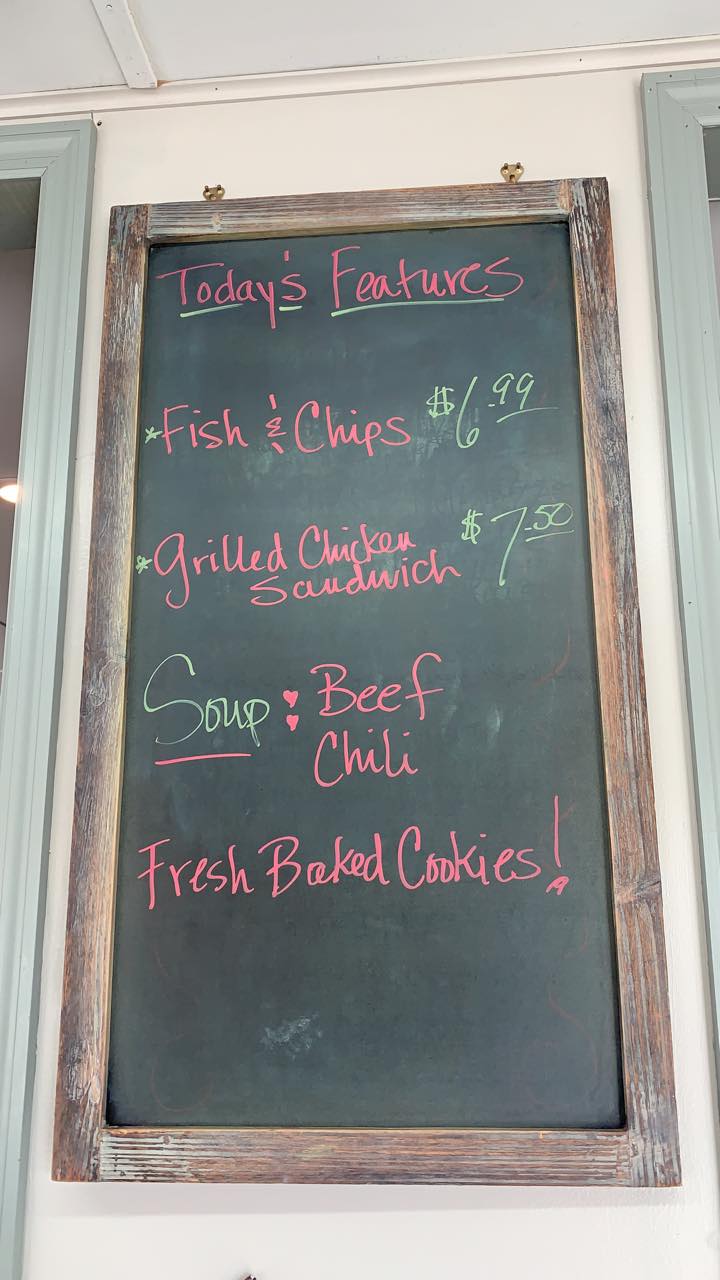 Today's Features
*Fish & Chips $6.99
*Grilled Chicken $7.50
Sandwich
Soup: Beef
Chili
Fresh Baked Cookies!